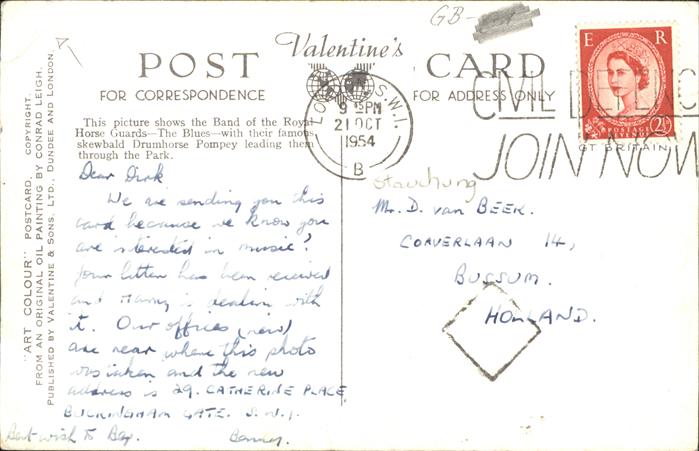 GB-
POST Valentine's CARD
FOR CORRESPONDENCE
FOR ADDRESS ONLY
"ART COLOUR" POSTCARD. COPYRIGHT.
FROM AN ORIGINAL OIL PAINTING BY CONRAD LEIGH.
PUBLISHED BY VALENTINE & SONS, LTD., DUNDEE AND LONDON.
This picture shows the Band of the Royal
Horse Guards—The Blues—with their famous
skewbald Drumhorse Pompey leading them
through the Park.
LONDON S.W.1.
9 15PM
21 OCT
1954
B
CIVIL DEFENCE
JOIN NOW
E R
POSTAGE
2½
GT BRITAIN
Dear Dirk
We are sending you this
card because we know you
are interested in music?
Your letter has been received
and is dealing with
it. Our offices (new)
are near where this photo
was taken and the new
address is 29. CATHERINE PLACE
BUCKINGHAM GATE. S.W.1.
Best wish to
Stauchung
Mr. D. van BEEK.
CORVERLAAN 14,
BUSSUM.
HOLLAND.